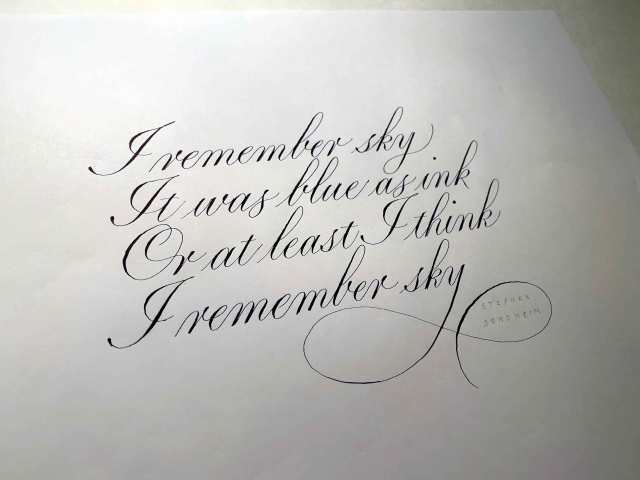 I remember sky
It was blue as ink
Or at least I think
I remember sky
STEPHEN
SONDHEIM